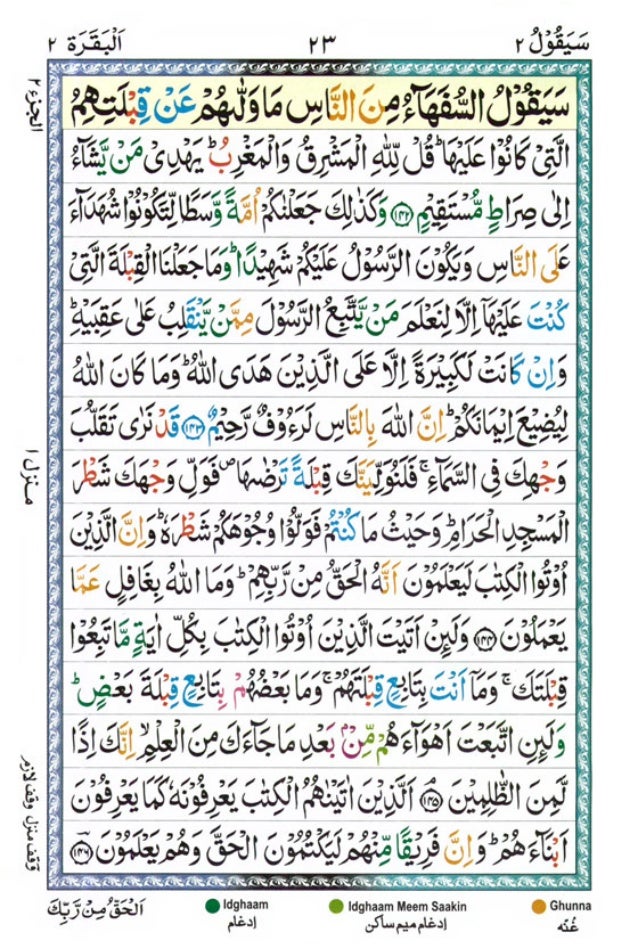 سَيَقُوْلُ ٢
٢٣
اَلْبَقَرَة ٢
الجزء ٢
سَيَقُوْلُ السُّفَهَآءُ مِنَ النَّاسِ مَا وَلّٰىهُمْ عَنْ قِبْلَتِهِمُ
الَّتِىْ كَانُوْا عَلَيْهَا ؕ قُلْ لِّلّٰهِ الْمَشْرِقُ وَالْمَغْرِبُ ؕ يَهْدِىْ مَنْ يَّشَآءُ
اِلٰى صِرَاطٍ مُّسْتَقِيْمٍ ﴿۱۴۲﴾ وَكَذٰلِكَ جَعَلْنٰكُمْ اُمَّةً وَّسَطًا لِّتَكُوْنُوْا شُهَدَآءَ
عَلَى النَّاسِ وَيَكُوْنَ الرَّسُوْلُ عَلَيْكُمْ شَهِيْدًا ؕ وَمَا جَعَلْنَا الْقِبْلَةَ الَّتِىْ
كُنْتَ عَلَيْهَآ اِلَّا لِنَعْلَمَ مَنْ يَّتَّبِعُ الرَّسُوْلَ مِمَّنْ يَّنْقَلِبُ عَلٰى عَقِبَيْهِ ؕ
وَاِنْ كَانَتْ لَكَبِيْرَةً اِلَّا عَلَى الَّذِيْنَ هَدَى اللّٰهُ ؕ وَمَا كَانَ اللّٰهُ
لِيُضِيْعَ اِيْمَانَكُمْ ؕ اِنَّ اللّٰهَ بِالنَّاسِ لَرَءُوْفٌ رَّحِيْمٌ ﴿۱۴۳﴾ قَدْ نَرٰى تَقَلُّبَ
وَجْهِكَ فِى السَّمَآءِ ۚ فَلَنُوَلِّيَنَّكَ قِبْلَةً تَرْضٰىهَا ۪ فَوَلِّ وَجْهَكَ شَطْرَ
الْمَسْجِدِ الْحَرَامِ ؕ وَحَيْثُ مَا كُنْتُمْ فَوَلُّوْا وُجُوْهَكُمْ شَطْرَهٗ ؕ وَاِنَّ الَّذِيْنَ
اُوْتُوا الْكِتٰبَ لَيَعْلَمُوْنَ اَنَّهُ الْحَقُّ مِنْ رَّبِّهِمْ ؕ وَمَا اللّٰهُ بِغَافِلٍ عَمَّا
منزل ١
يَعْمَلُوْنَ ﴿۱۴۴﴾ وَلَئِنْ اَتَيْتَ الَّذِيْنَ اُوْتُوا الْكِتٰبَ بِكُلِّ اٰيَةٍ مَّا تَبِعُوْا
قِبْلَتَكَ ۚ وَمَآ اَنْتَ بِتَابِعٍ قِبْلَتَهُمْ ۚ وَمَا بَعْضُهُمْ بِتَابِعٍ قِبْلَةَ بَعْضٍ ؕ
وَلَئِنِ اتَّبَعْتَ اَهْوَآءَهُمْ مِّنْۢ بَعْدِ مَا جَآءَكَ مِنَ الْعِلْمِ ۙ اِنَّكَ اِذًا
لَّمِنَ الظّٰلِمِيْنَ ﴿۱۴۵﴾ اَلَّذِيْنَ اٰتَيْنٰهُمُ الْكِتٰبَ يَعْرِفُوْنَهٗ كَمَا يَعْرِفُوْنَ
اَبْنَآءَهُمْ ؕ وَاِنَّ فَرِيْقًا مِّنْهُمْ لَيَكْتُمُوْنَ الْحَقَّ وَهُمْ يَعْلَمُوْنَ ﴿۱۴۶﴾
وقف منزل وقف لازم
اَلْحَقُّ مِنْ رَّبِّكَ
Idghaam
ادغام
Idghaam Meem Saakin
ادغام میم ساکن
Ghunna
غُنّه